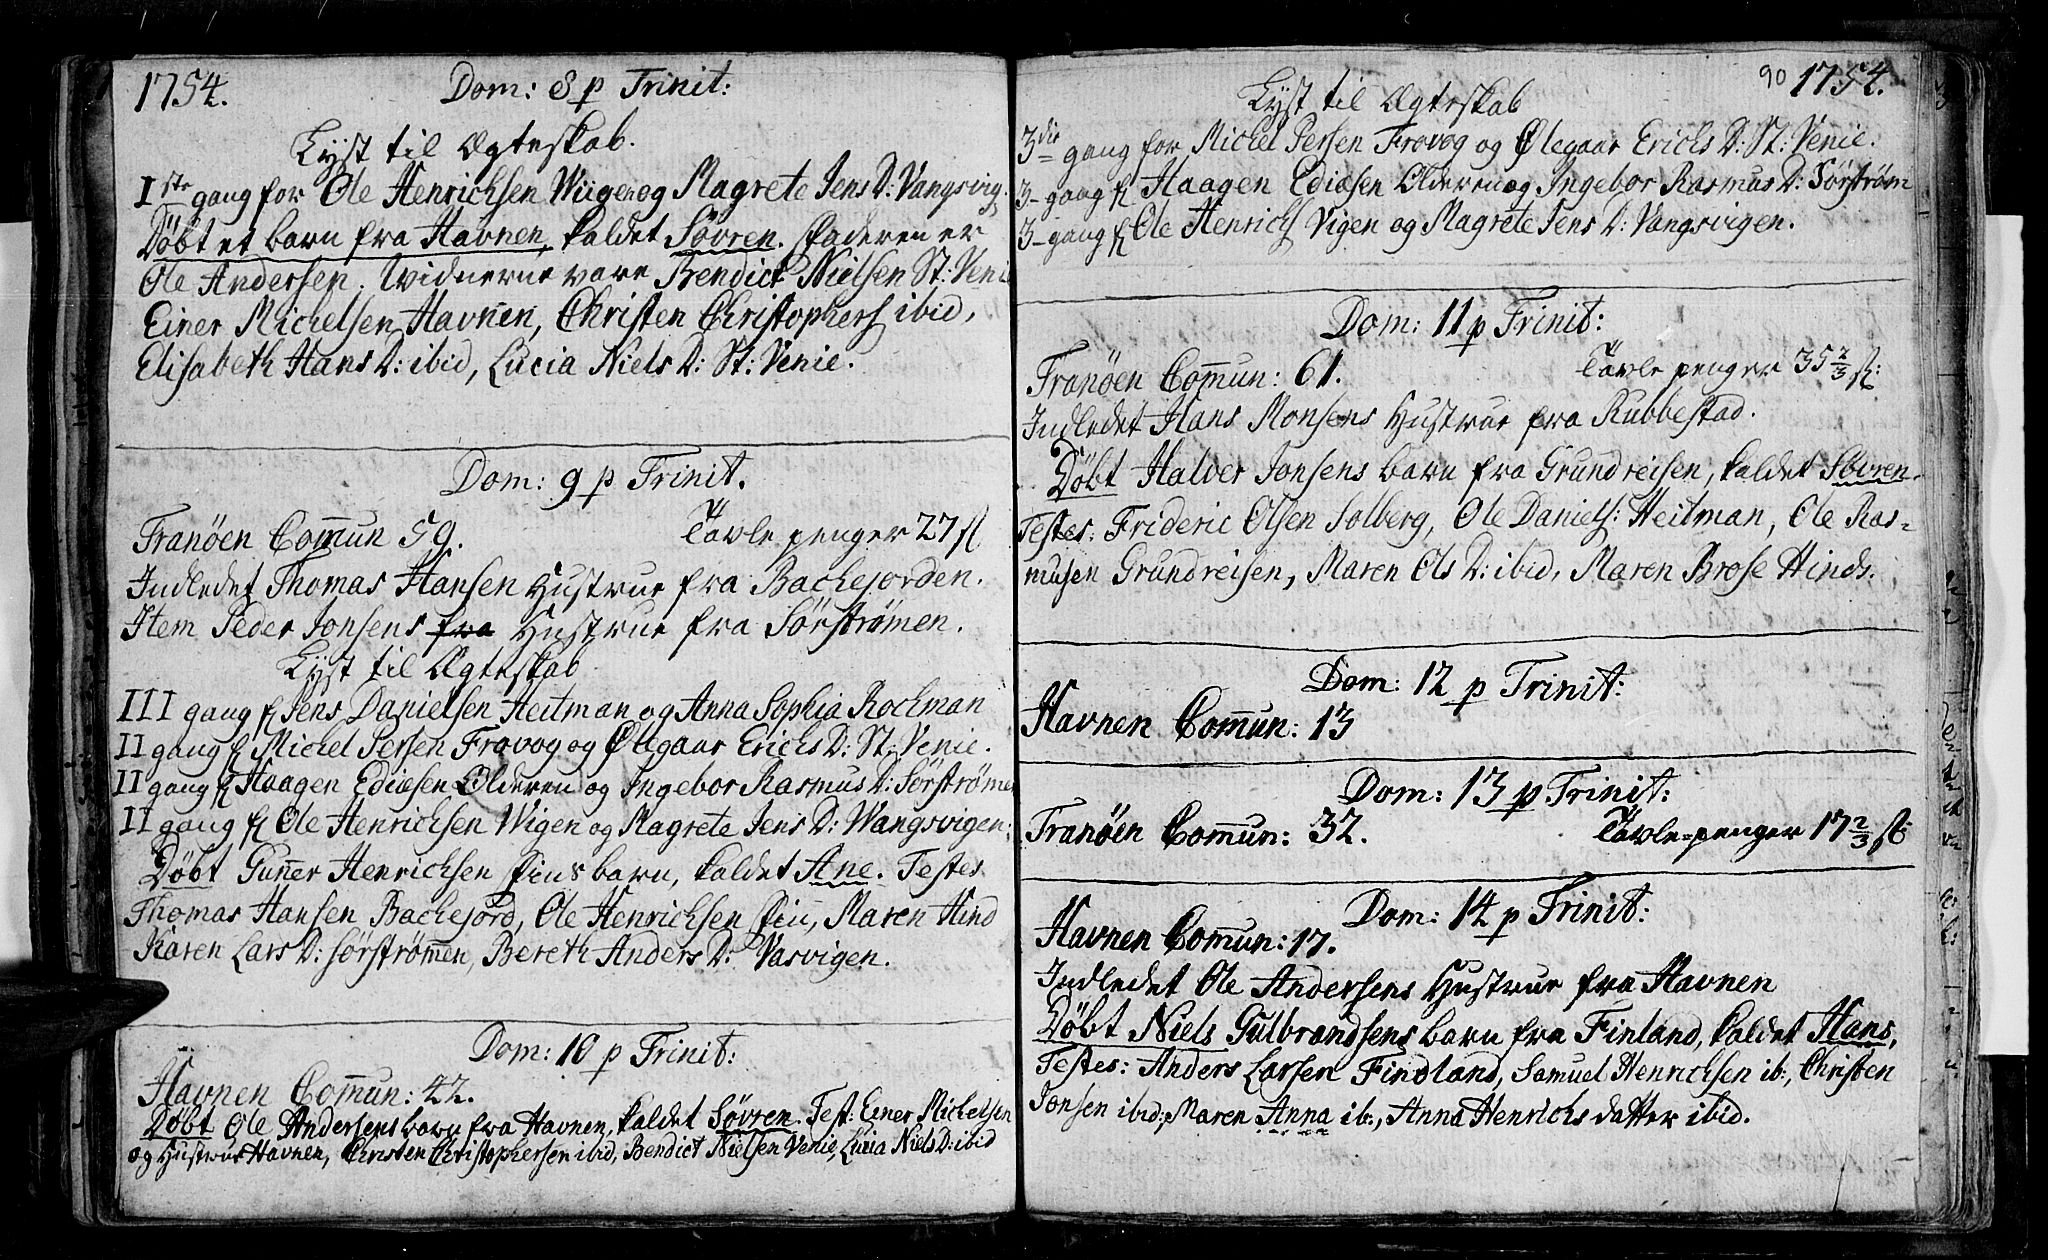 1754. Dom: 8 p Trinit:
Lyst til Ægteskab.
1ste gang for Ole Henrichsen Wiigen og Magrete Jens D: Vangsvig:
Døbt et barn fra Havnen, kaldet Søvren. Faderen er
Ole Andersen. Widnerne vare Bendict Nielsen St: Venie
Einer Michelsen Havnen, Christen Christophers ibid,
Elisabeth Hans D: ibid, Lucia Niels D: St: Venie.
Dom: 9 p Trinit.
Tranöen Comun 59. Tavle penger 27 ß
Indledet Thomas Hansen Hustrue fra Bachejorden.
Item Peder Jonsens fra Hustrue fra Sörströmen.
Lyst til Ægteskab
III gang f Jens Danielsen Heitman og Anna Sophia Rochman
II gang f Michel Persen Frovog og Ølegaar Erichs D: St: Venie.
II gang f Haagen Ediæsen Olderen og Ingebor Rasmus D: Sörströmen
II gang f Ole Henrichsen Wigen og Magrete Jens D: Wangsvigen:
Døbt Guner Henrichsen Finsbarn, kaldet Ane. Testes
Thomas Hansen Bachejord, Ole Henrichsen Fin, Maren Hind
Karen Lars D: Sörströmen, Bereth Anders D: Vasvigen.
Dom: 10 p Trinit:
Havnen Comun: 42.
Døbt Ole Andersens barn fra Havnen, kaldet Søvren. Test: Einer Michelsen
og Hustrue Havnen, Christen Christophersen ibid, Bendict Nielsen Venie, Lucia Niels D: ibid
90 1754.
Lyst til Ægteskab
3die gang for Michel Persen Frovog og Ølegaar Erichs D: St: Venie.
3- gang f Haagen Ediæsen Olderen og Ingebor Rasmus D: Sörström
3- gang f Ole Henrichs Vigen og Magrete Jens D: Vangsvigen.
Dom: 11 p Trinit:
Tranöen Comun: 61. Tavle penger 35 2/3 ß:
Indledet Hans Monsens Hustrue fra Rubbestad.
Døbt Halver Jonsens barn fra Grundreisen, kaldet Søvren.
Testes: Frideric Olsen Solberg, Ole Daniels: Heitman, Ole Ras=
musen Grundreisen, Maren Ols D: ibid, Maren Brose Hinds.
Dom: 12 p Trinit:
Havnen Comun: 13
Dom: 13 p Trinit:
Tranöen Comun: 32. Tavle=penger 17 2/3 ß
Dom: 14 p Trinit:
Havnen Comun: 17.
Indledet Ole Andersens Hustrue fra Havnen
Døbt Niels Gulbrandsens barn fra Finland, kaldet Hans,
Testes: Anders Larsen Findland, Samuel Henrichsen ib:, Christen
Jonsen ibid: Maren Anna ib:, Anna Henrichs datter ibid.